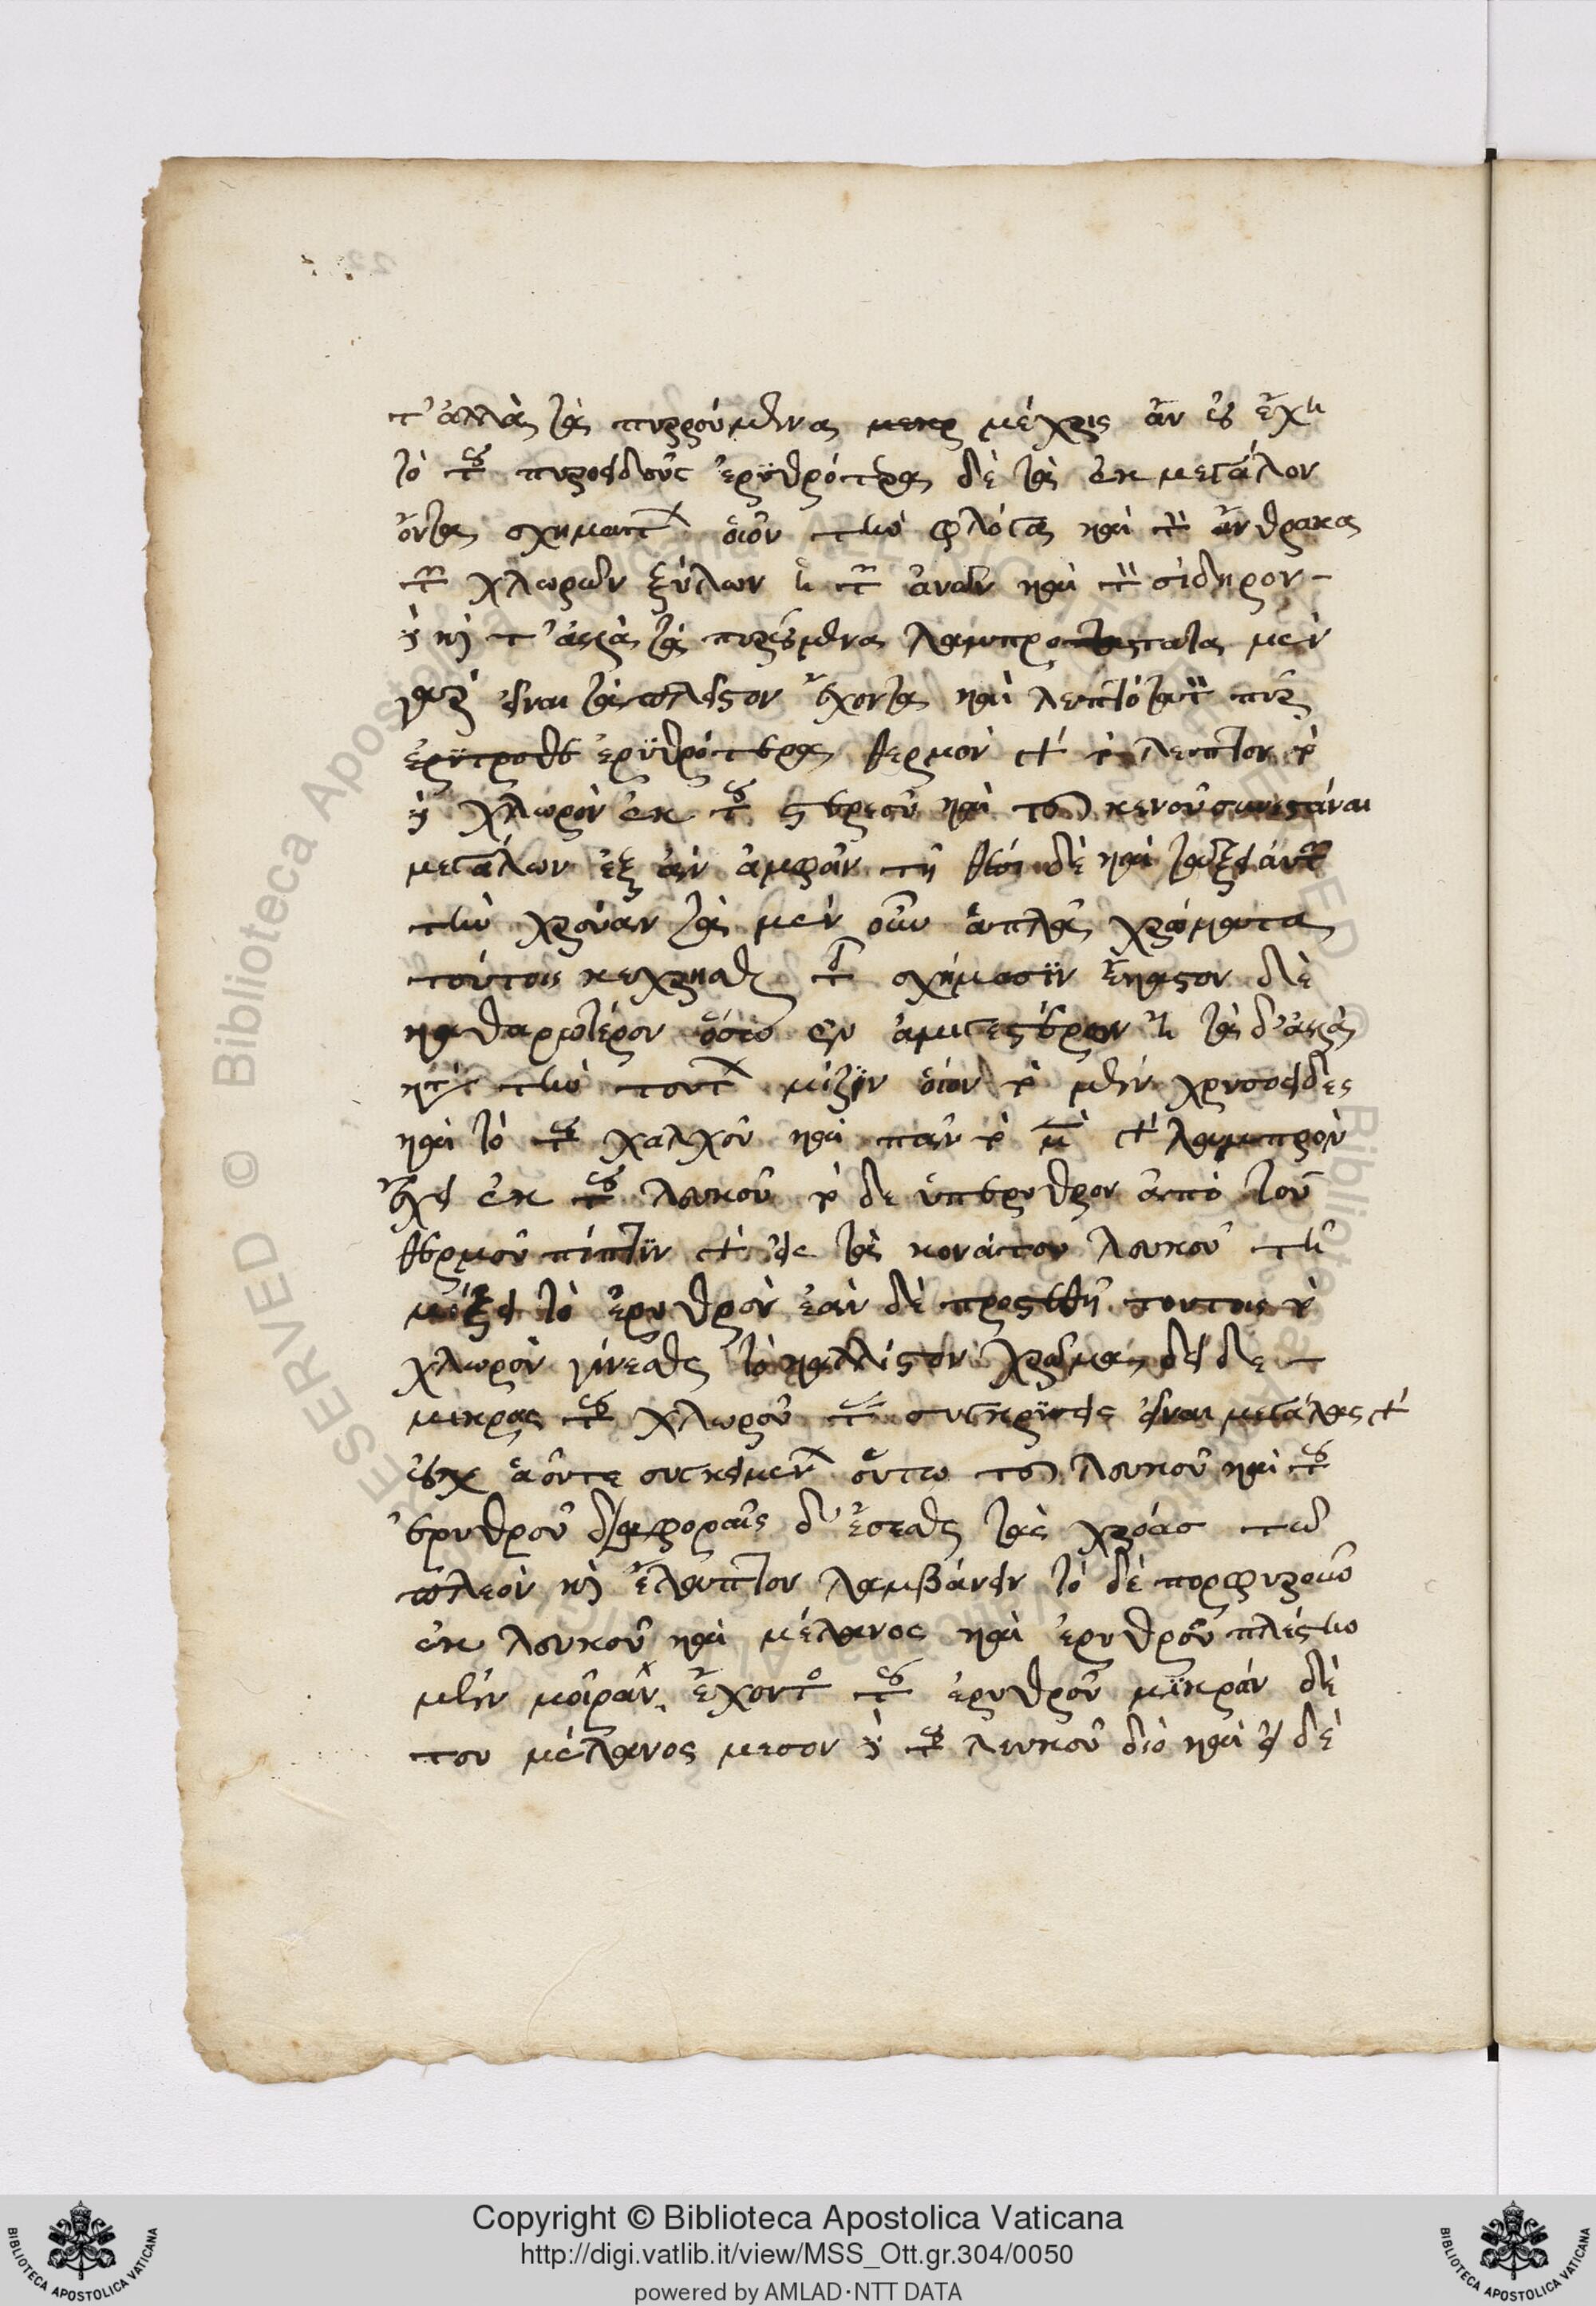 τ' ἀλλὰ τὰ πυρρούμενα μεκρ μέχρις ἂν οὐ ἔχη
τὸ τοῦ πυροειδοῦς ἐρυθρότερα δὲ τὰ ἐκ μεγάλον
ὄντα σχημάτων οἷον τὴν φλόγα καὶ τὸν ἄνθρακα
τῶν χλωρῶν ξύλων ἢ τῶν αὔων καὶ τὸν σίδηρον
δὲ καὶ τ' ἄλλα τὰ πυρούμενα λαμπρότατα μὲν
γὰρ εἶναι τὰ πλεῖστον ἔχοντα καὶ λεπτότατον πῦρ
ἐρυθρότερα θερμὸν γὰρ τὸ λεπτὸν τὸ
δὲ χλωρὸν ἐκ τοῦ στερεοῦ καὶ τοῦ κενοῦ συνεστάναι
μεγάλων ἐξ ἀμφοῖν τῇ θέσει δὲ καὶ τάξει αὐτῶν
τὴν χρόαν τὰ μὲν οὖν ἁπλᾶ χρώματα
τούτοις κεχρῆσθαι τοῖς σχήμασιν ἕκαστον δὲ
καθαρώτερον ὅσῳ ἐν ἀμιγεστέρων ἢ τὰ δ' ἄλλα
κατὰ τὴν τούτων μίξιν οἷον τὸ μὲν χρυσοειδὲς
καὶ τὸ τοῦ χαλκοῦ καὶ πᾶν τὸ μὲν γὰρ λαμπρὸν
ἔχει ἐκ τοῦ λευκοῦ τὸ δε ὑπέρυθρον ἀπὸ τοῦ
θερμοῦ πίπτειν γὰρ εἰς τὰ κενὰ τοῦ λευκοῦ τῇ
μίξει τὸ ἐρυθρὸν ἐὰν δὲ προστεθῇ τούτοις τὸ
χλωρὸν γίνεσθαι τὸ κάλλιστον χρῶμα, δεῖ δε
μικρας τοῦ χλωροῦ τὰς συγκρίσεις εἶναι μεγάλας γὰρ
οὐχ οἷόντε συγκειμένων οὕτω τοῦ λευκοῦ καὶ τοῦ
ἐρυθροῦ διαφοραῖς δ' ἔσεσθαι τὰς χρόας τῷ
πλέον καὶ ἔλαττον λαμβάνειν τὸ δὲ πορφυροῦν
ἐκ λευκοῦ καὶ μέλανος καὶ ἐρυθροῦ πλείστην
μὲν μοῖραν ἔχοντος τοῦ ἐρυθροῦ μικρὰν δὲ
του μέλανος μεσον δὲ τοῦ λευκοῦ διὸ καὶ ἡδὺ
Copyright © Biblioteca Apostolica Vaticana
http://digi.vatlib.it/view/MSS_Ott.gr.304/0050
powered by AMLAD·NTT DATA